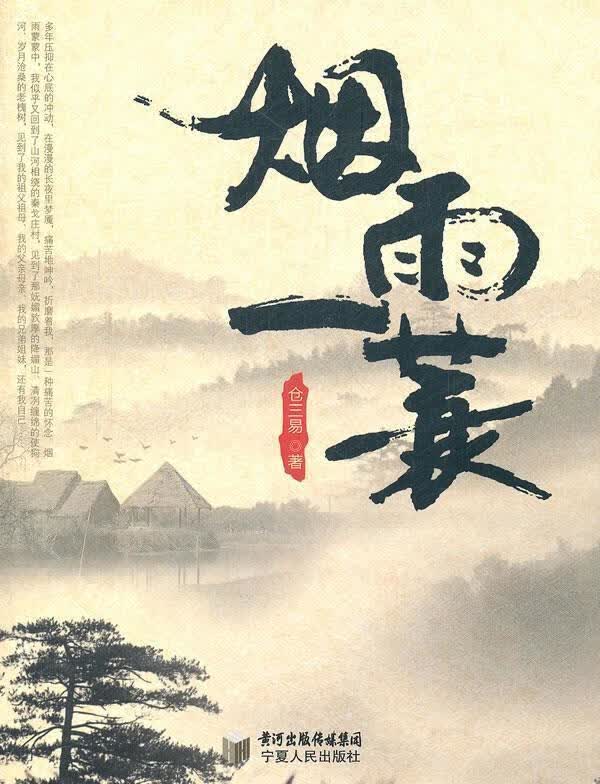 烟雨
一蓑
仓三易◎著
多年压抑在心底的冲动，在漫漫的长夜里梦魇，痛苦地呻吟，折磨着我，那是一种痛苦的怀念。烟
雨蒙蒙中，我似乎又回到了山河相绕的秦戈庄村，见到了那妩媚敦厚的降媚山、清冽缠绵的使狗
河、岁月沧桑的老槐树，见到了我的祖父祖母、我的父亲母亲、我的兄弟姐妹，还有我自己……
黄河出版传媒集团
宁夏人民出版社